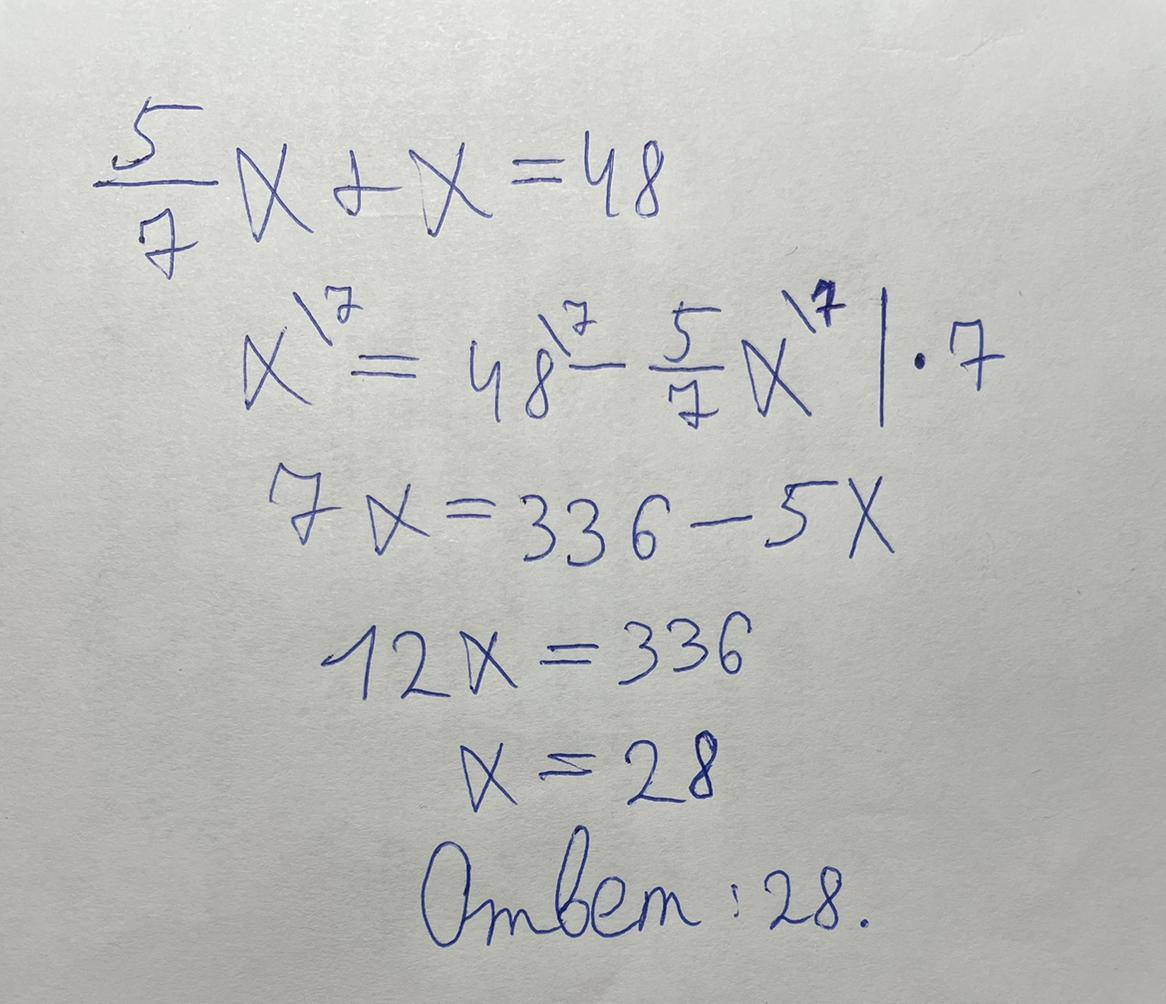 5/7 x + x = 48
x\7 = 48\7 - 5/7 x\7 | · 7
7x = 336 - 5x
12x = 336
x = 28
Ответ: 28.